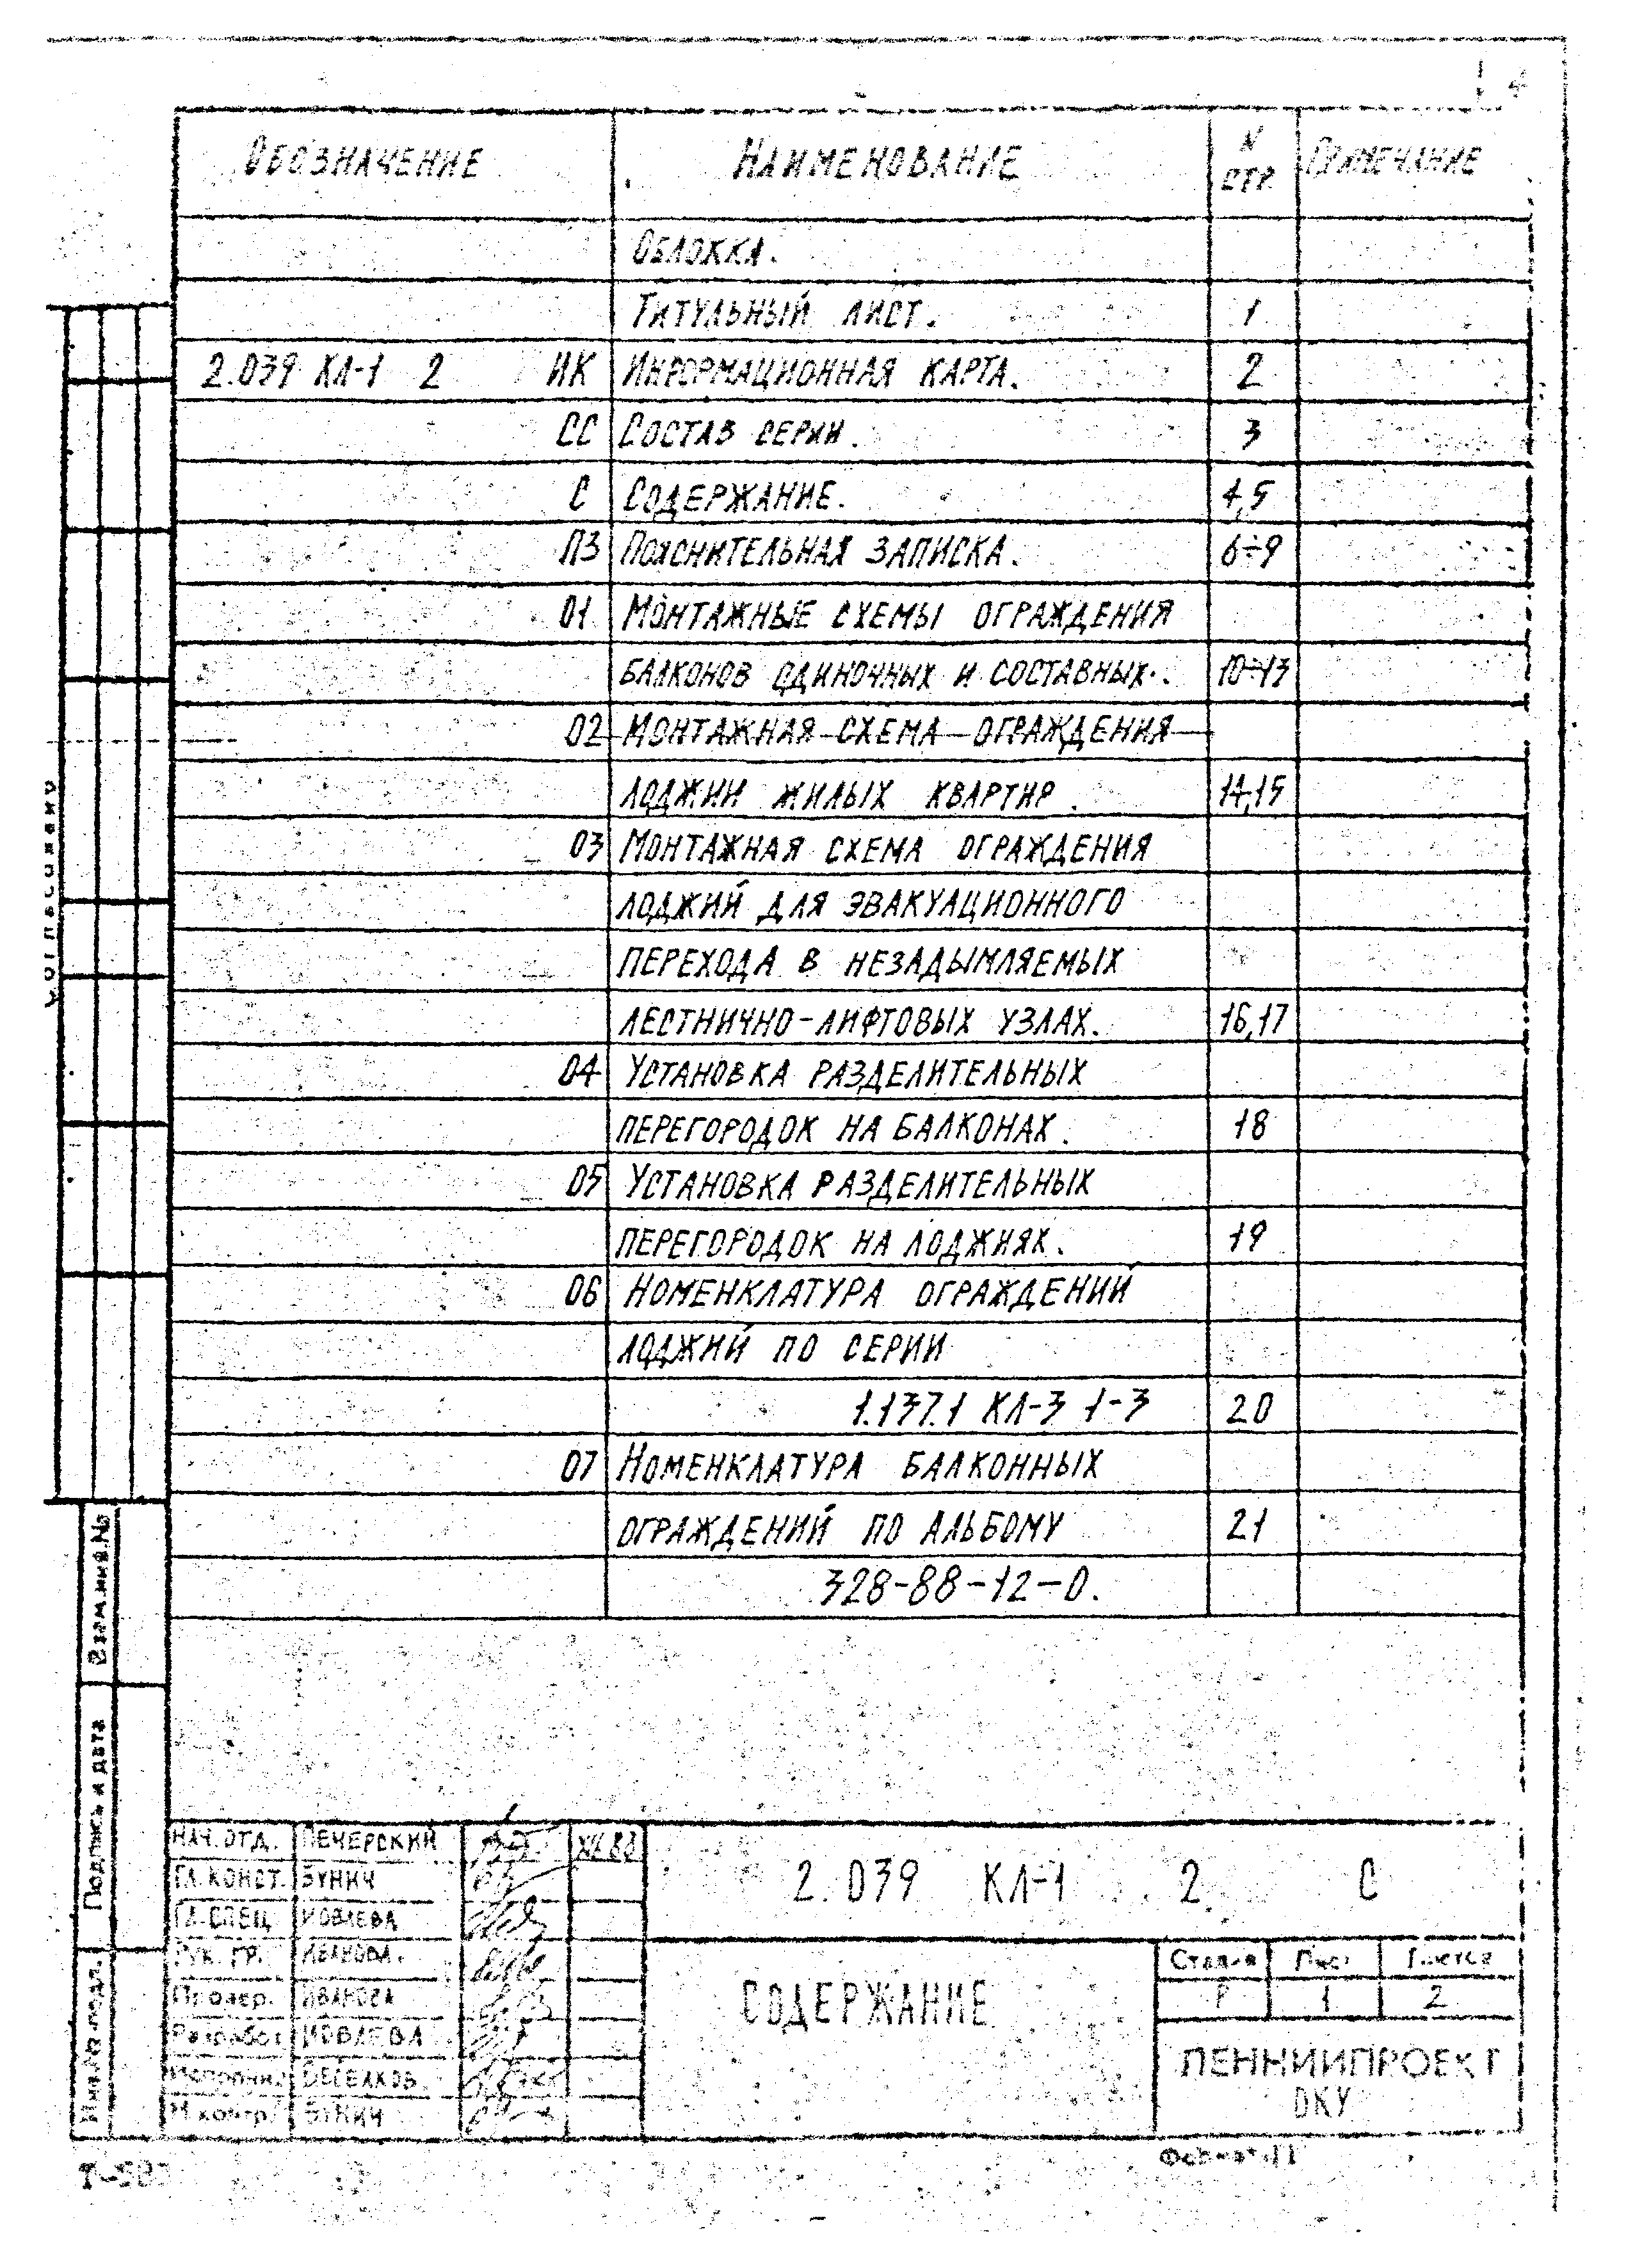 4
Обозначение Наименование N стр. Примечание
Обложка.
Титульный лист. 1
2.039 КЛ-1 2 ИК Информационная карта. 2
СС Состав серии. 3
С Содержание. 4,5
ПЗ Пояснительная записка. 6÷9
01 Монтажные схемы ограждения
балконов одиночных и составных. 10÷13
02 Монтажная схема ограждения
лоджии жилых квартир. 14,15
03 Монтажная схема ограждения
лоджий для эвакуационного
перехода в незадымляемых
лестнично-лифтовых узлах. 16,17
04 Установка разделительных
перегородок на балконах. 18
05 Установка разделительных
перегородок на лоджиях. 19
06 Номенклатура ограждений
лоджий по серии
1.137.1 КЛ-3 1-3 20
07 Номенклатура балконных
ограждений по альбому 21
328-88-12-0.
Согласовано
Взам.инв.№
Подпись и дата
Инв.№ подл.
Нач.отд. Печерский XII.88
Гл.конст. Бунич
Гл.спец. Иовлева
Рук. гр. Иванова.
Провер. Иванова
Разработ. Иовлева
Исполнил
Н.контр. Бунич
2.039 КЛ-1 2 С
СОДЕРЖАНИЕ
Стадия Лист Листов
Р 1 2
ЛЕННИИПРОЕКТ
ОКУ
Формат 11